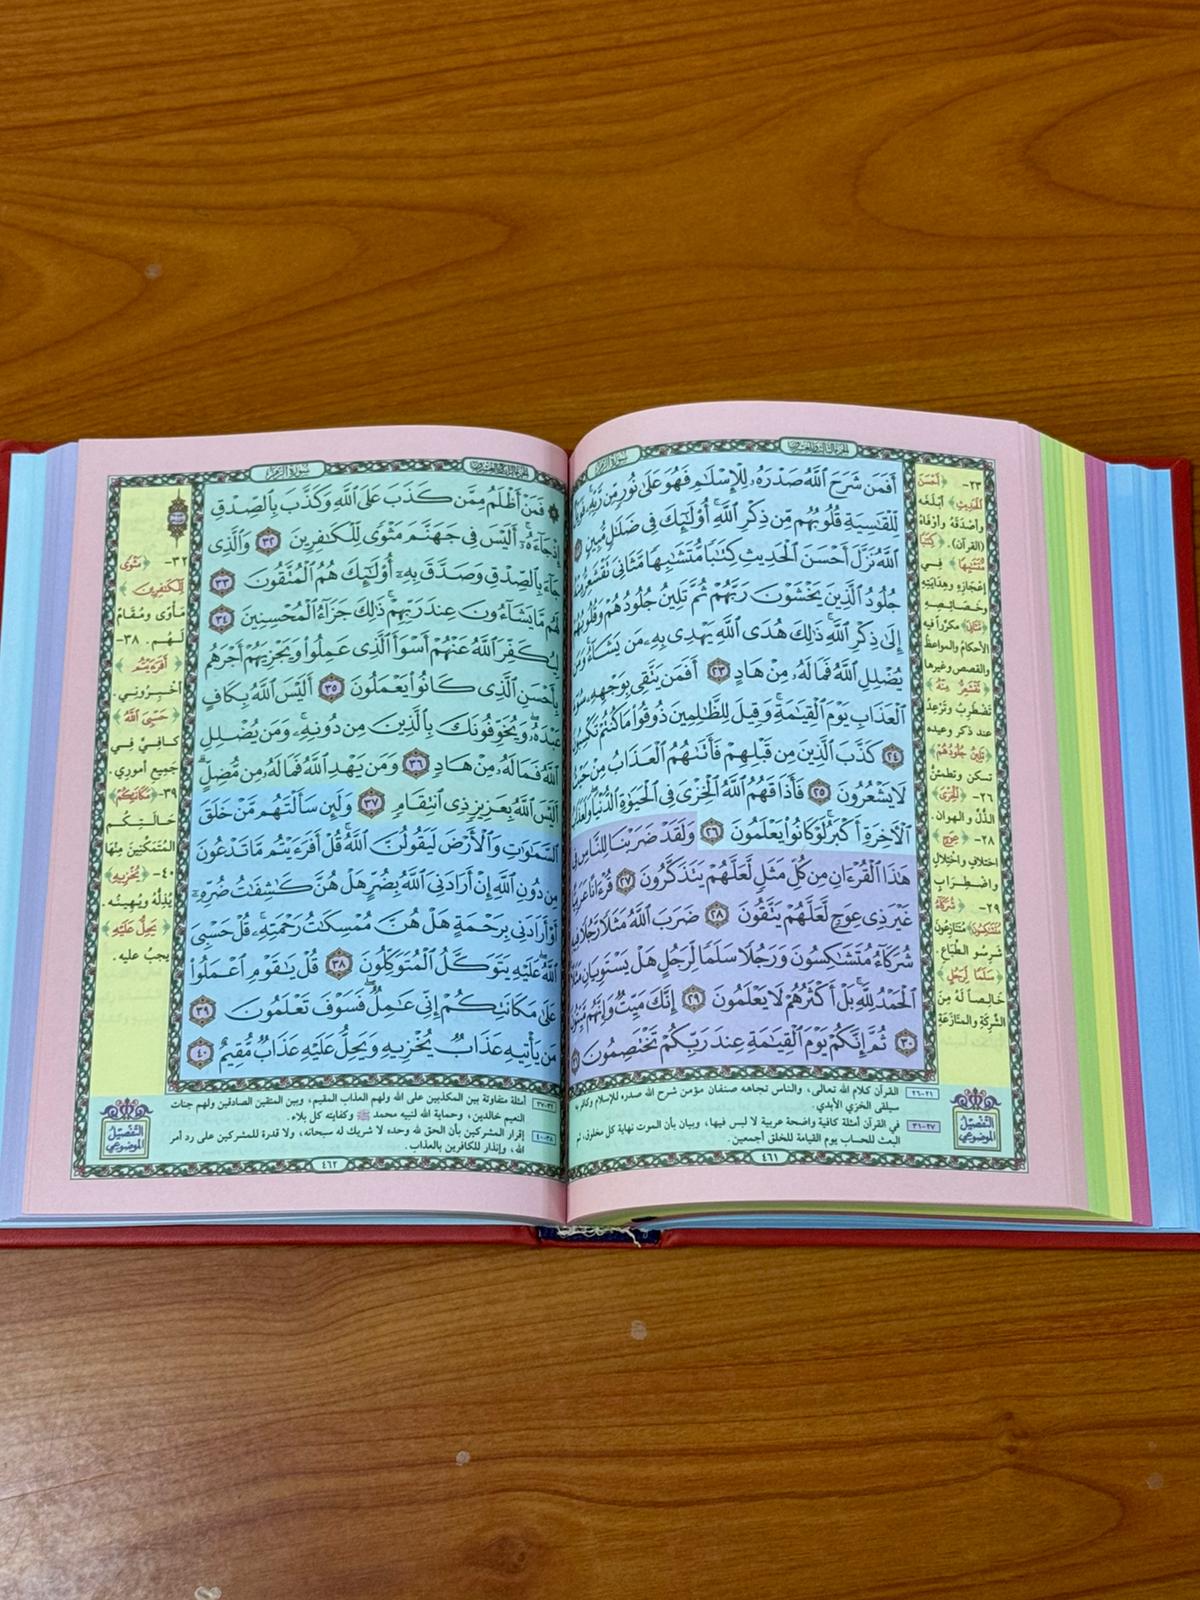 الجزء الثالث والعشرون
سورة الزمر
أَفَمَن شَرَحَ ٱللَّهُ صَدْرَهُۥ لِلْإِسْلَٰمِ فَهُوَ عَلَىٰ نُورٍ مِّن رَّبِّهِۦ ۚ فَوَيْلٌ
لِّلْقَٰسِيَةِ قُلُوبُهُم مِّن ذِكْرِ ٱللَّهِ ۚ أُو۟لَٰٓئِكَ فِى ضَلَٰلٍ مُّبِينٍ
ٱللَّهُ نَزَّلَ أَحْسَنَ ٱلْحَدِيثِ كِتَٰبًا مُّتَشَٰبِهًا مَّثَانِىَ تَقْشَعِرُّ مِنْهُ
جُلُودُ ٱلَّذِينَ يَخْشَوْنَ رَبَّهُمْ ثُمَّ تَلِينُ جُلُودُهُمْ وَقُلُوبُهُمْ
إِلَىٰ ذِكْرِ ٱللَّهِ ۚ ذَٰلِكَ هُدَى ٱللَّهِ يَهْدِى بِهِۦ مَن يَشَآءُ ۚ وَمَن
يُضْلِلِ ٱللَّهُ فَمَا لَهُۥ مِنْ هَادٍ ٢٣ أَفَمَن يَتَّقِى بِوَجْهِهِۦ سُوٓءَ
ٱلْعَذَابِ يَوْمَ ٱلْقِيَٰمَةِ ۚ وَقِيلَ لِلظَّٰلِمِينَ ذُوقُوا۟ مَا كُنتُمْ تَكْسِبُونَ
٢٤ كَذَّبَ ٱلَّذِينَ مِن قَبْلِهِمْ فَأَتَىٰهُمُ ٱلْعَذَابُ مِنْ حَيْثُ
لَا يَشْعُرُونَ ٢٥ فَأَذَاقَهُمُ ٱللَّهُ ٱلْخِزْىَ فِى ٱلْحَيَوٰةِ ٱلدُّنْيَا ۖ وَلَعَذَابُ
ٱلْءَاخِرَةِ أَكْبَرُ ۚ لَوْ كَانُوا۟ يَعْلَمُونَ ٢٦ وَلَقَدْ ضَرَبْنَا لِلنَّاسِ فِى
هَٰذَا ٱلْقُرْءَانِ مِن كُلِّ مَثَلٍ لَّعَلَّهُمْ يَتَذَكَّرُونَ ٢٧ قُرْءَانًا عَرَبِيًّا
غَيْرَ ذِى عِوَجٍ لَّعَلَّهُمْ يَتَّقُونَ ٢٨ ضَرَبَ ٱللَّهُ مَثَلًا رَّجُلًا فِيهِ
شُرَكَآءُ مُتَشَٰكِسُونَ وَرَجُلًا سَلَمًا لِّرَجُلٍ هَلْ يَسْتَوِيَانِ مَثَلًا
ٱلْحَمْدُ لِلَّهِ ۚ بَلْ أَكْثَرُهُمْ لَا يَعْلَمُونَ ٢٩ إِنَّكَ مَيِّتٌ وَإِنَّهُم مَّيِّتُونَ
٣٠ ثُمَّ إِنَّكُمْ يَوْمَ ٱلْقِيَٰمَةِ عِندَ رَبِّكُمْ تَخْتَصِمُونَ ٣١
٢٣- ﴿أَحْسَنَ
الْحَدِيثِ﴾ أبلغه
وأصدقه وأوفاه
(القرآن). ﴿كِتَابًا
مُتَشَابِهًا﴾ في
إعجازه وهدايته
وخصائصه
﴿مَثَانِيَ﴾ مكرراً فيه
الأحكام والمواعظ
والقصص وغيرها
﴿تَقْشَعِرُّ مِنْهُ﴾
تضطرب وترعد
عند ذكر وعيده
﴿تَلِينُ جُلُودُهُمْ﴾
تسكن وتطمئن
٢٦- ﴿الْخِزْيَ﴾
الذل والهوان.
٢٨- ﴿عِوَجٍ﴾
اختلاف واختلال
واضطراب
٢٩- ﴿شُرَكَاءُ
مُتَشَاكِسُونَ﴾ متنازعون
شرسو الطباع.
﴿سَلَمًا لِرَجُلٍ﴾
خالصاً له من
الشركة والمنازعة
التفصيل
الموضوعي
٢٦-٢١ القرآن كلام الله تعالى، والناس تجاهه صنفان مؤمن شرح الله صدره للإسلام وكافر
سيلقى الخزي الأبدي.
٣١-٢٧ في القرآن أمثلة كافية واضحة عربية لا لبس فيها، وبيان بأن الموت نهاية كل مخلوق، ثم
البعث للحساب يوم القيامة للخلق أجمعين.
٤٦١
الجزء الرابع والعشرون
سورة الزمر
۞ فَمَنْ أَظْلَمُ مِمَّن كَذَبَ عَلَى ٱللَّهِ وَكَذَّبَ بِٱلصِّدْقِ
إِذْ جَآءَهُۥٓ ۚ أَلَيْسَ فِى جَهَنَّمَ مَثْوًى لِّلْكَٰفِرِينَ ٣٢ وَٱلَّذِى
جَآءَ بِٱلصِّدْقِ وَصَدَّقَ بِهِۦٓ ۙ أُو۟لَٰٓئِكَ هُمُ ٱلْمُتَّقُونَ ٣٣
لَهُم مَّا يَشَآءُونَ عِندَ رَبِّهِمْ ۚ ذَٰلِكَ جَزَآءُ ٱلْمُحْسِنِينَ ٣٤
لِيُكَفِّرَ ٱللَّهُ عَنْهُمْ أَسْوَأَ ٱلَّذِى عَمِلُوا۟ وَيَجْزِيَهُمْ أَجْرَهُم
بِأَحْسَنِ ٱلَّذِى كَانُوا۟ يَعْمَلُونَ ٣٥ أَلَيْسَ ٱللَّهُ بِكَافٍ
عَبْدَهُۥ ۖ وَيُخَوِّفُونَكَ بِٱلَّذِينَ مِن دُونِهِۦ ۚ وَمَن يُضْلِلِ
ٱللَّهُ فَمَا لَهُۥ مِنْ هَادٍ ٣٦ وَمَن يَهْدِ ٱللَّهُ فَمَا لَهُۥ مِن مُّضِلٍّ ۗ
أَلَيْسَ ٱللَّهُ بِعَزِيزٍ ذِى ٱنتِقَامٍ ٣٧ وَلَئِن سَأَلْتَهُم مَّنْ خَلَقَ
ٱلسَّمَٰوَٰتِ وَٱلْأَرْضَ لَيَقُولُنَّ ٱللَّهُ ۚ قُلْ أَفَرَءَيْتُم مَّا تَدْعُونَ
مِن دُونِ ٱللَّهِ إِنْ أَرَادَنِىَ ٱللَّهُ بِضُرٍّ هَلْ هُنَّ كَٰشِفَٰتُ ضُرِّهِۦٓ
أَوْ أَرَادَنِى بِرَحْمَةٍ هَلْ هُنَّ مُمْسِكَٰتُ رَحْمَتِهِۦ ۚ قُلْ حَسْبِىَ
ٱللَّهُ ۖ عَلَيْهِ يَتَوَكَّلُ ٱلْمُتَوَكِّلُونَ ٣٨ قُلْ يَٰقَوْمِ ٱعْمَلُوا۟
عَلَىٰ مَكَانَتِكُمْ إِنِّى عَٰمِلٌ ۖ فَسَوْفَ تَعْلَمُونَ ٣٩
مَن يَأْتِيهِ عَذَابٌ يُخْزِيهِ وَيَحِلُّ عَلَيْهِ عَذَابٌ مُّقِيمٌ ٤٠
٣٢- ﴿مَثْوًى
لِلْكَافِرِينَ﴾
مأوى ومقام
لهم. ٣٨-
﴿أَفَرَأَيْتُمْ﴾
أخبروني.
﴿حَسْبِيَ اللَّهُ﴾
كافيَّ في
جميع أموري.
٣٩- ﴿مَكَانَتِكُمْ﴾
حالتكم
المتمكنين منها
٤٠- ﴿يُخْزِيهِ﴾
يذله ويهينه.
﴿يَحِلُّ عَلَيْهِ﴾
يجب عليه.
التفصيل
الموضوعي
٣٧-٣٢ أمثلة متفاوتة بين المكذبين على الله ولهم العذاب المقيم، وبين المتقين الصادقين ولهم جنات
النعيم خالدين، وحماية الله لنبيه محمد ﷺ وكفايته كل بلاء.
٤٠-٣٨ إقرار المشركين بأن الحق لله وحده لا شريك له سبحانه، ولا قدرة للمشركين على رد أمر
الله، وإنذار للكافرين بالعذاب.
٤٦٢